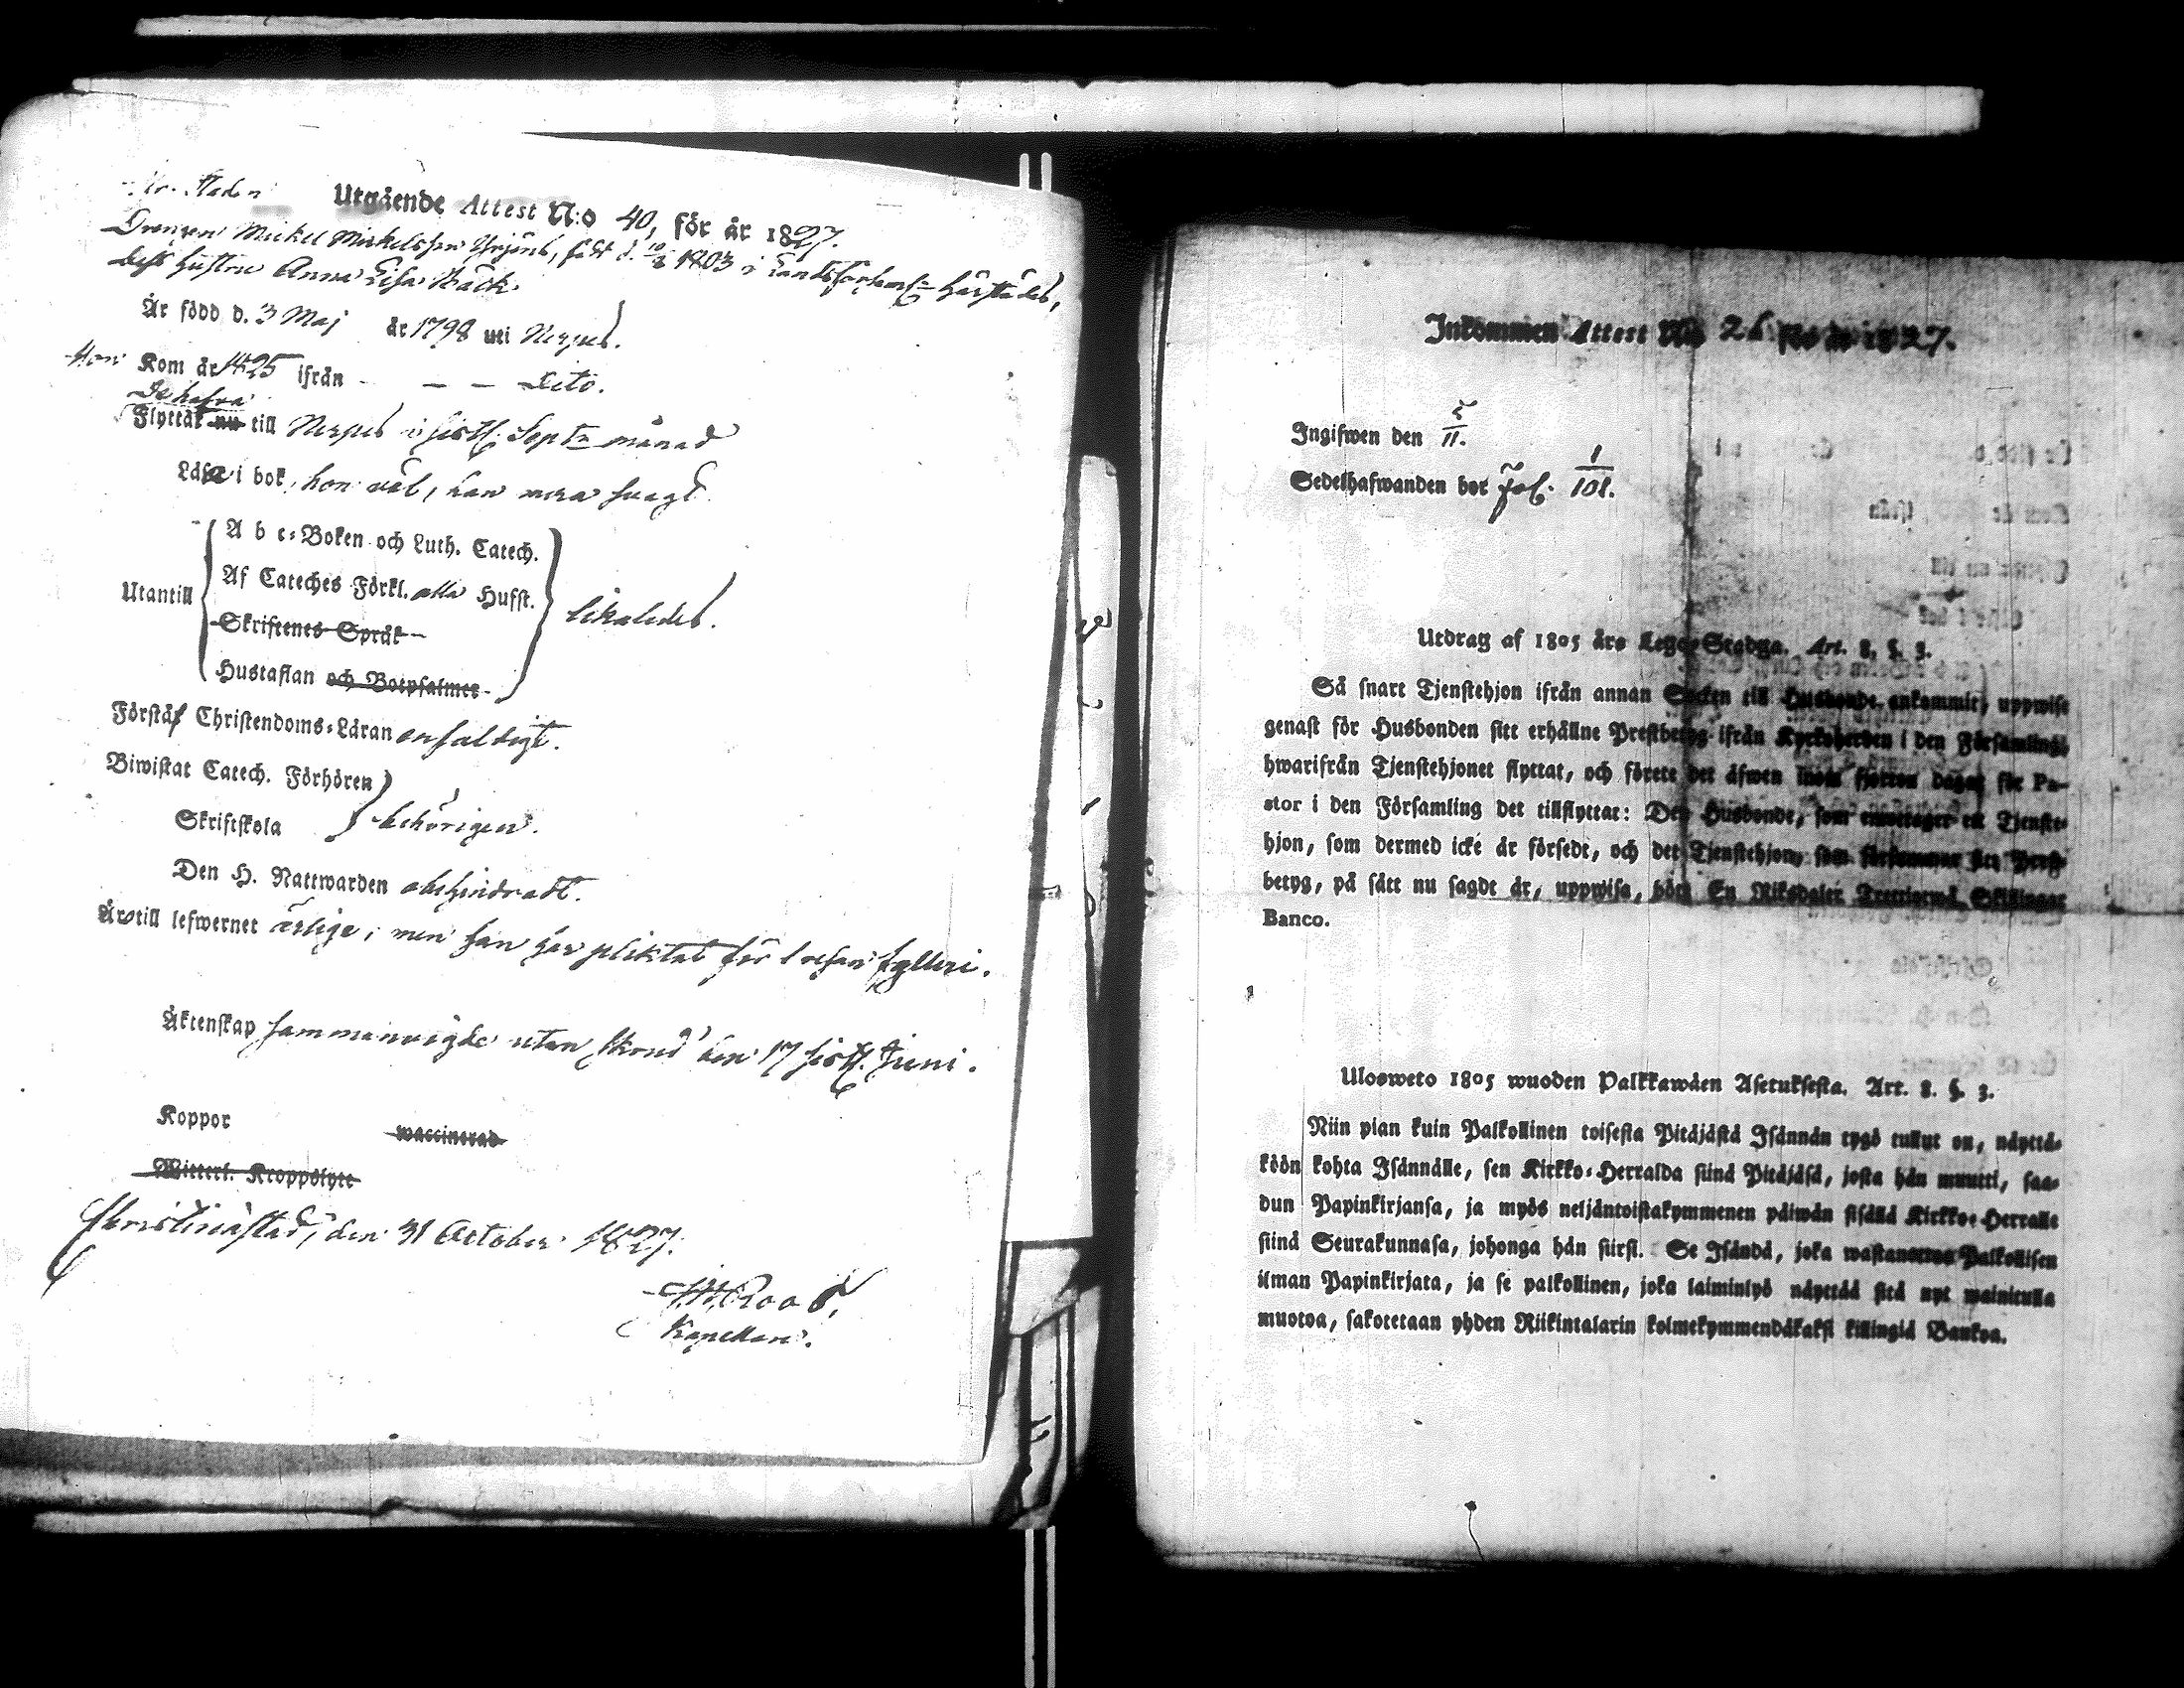 Staden
Utgående Attest N:o 40, för år 1827.
Drengen Mickel Mickelsson född d. 10/2 1803 i Landsförsaml: härstädes,
dess hustru Anna Lisa Bäck
Är född d. 3 Maj år 1798 uti Nerpes.
Hon Kom år 1825 ifrån - - - Dito.
De hafva
Flyttat nu till Nerpes i sistl. Septr månad
Läsa i bok, hon väl, han svagt.
A b c-Boken och Luth. Catech.
Af Cateches Förkl. alla Hufst.
Utantill likaledes.
Skriftenes Språk
Hustaflan och Botpsalmer
Förstå Christendoms-Läran enfaldigt.
Biwistat Catech. Förhören
behörigen.
Skriftskola
Den H. Nattwarden obehindradt.
Äro till lefwernet ärlige, men han har pliktat för 1 resan fylleri.
Äktenskap sammanvigde utan den 17 sistl. Juni.
Koppor waccinerad
Witterl. Kroppslyte
Christinæstad, den 31 October 1827.
Roos,
Kapellan.
Inkommen Attest No 26 för år 1827.
Ingifwen den 5/11.
Sedelhafwanden bor Fol. 1/101.
Utdrag af 1805 års Lego-Stadga. Art. 8, §. 3.
Så snart Tjenstehjon ifrån annan Socken till Husbonde ankommit, uppwise
genast för Husbonden sitt erhållne Prestbetyg ifrån Kyrkoherden i den Församling,
hwarifrån Tjenstehjonet flyttat, och förete det äfwen inom fjorton dagar för Pa-
stor i den Församling det tillflyttat: Den Husbonde, som emottager ett Tjenste-
hjon, som dermed icke är försedt, och det Tjenstehjon, som försummar sitt Prest-
betyg, på sätt nu sagdt är, uppwisa, böte En Riksdaler Trettiotwå Skillingar
Banco.
Ulosweto 1805 wuoden Palkkawäen Asetuksesta. Art. 8. §. 3.
Niin pian kuin Palkollinen toisesta Pitäjästä Isännän tygö tullut on, näyttä-
köön kohta Isännälle, sen Kirkko-Herralda siinä Pitäjäsä, josta hän muutti, saa-
dun Papinkirjansa, ja myös neljäntoistakymmenen päiwän sisällä Kirkko-Herralle
siinä Seurakunnasa, johonga hän siirsi. Se Isändä, joka wastanottaa Palkollisen
ilman Papinkirjata, ja se palkollinen, joka laiminlyö näyttää sitä nyt mainitulla
muotoa, sakotetaan yhden Riikintalarin kolmekymmendäkaksi killingiä Bankoa.